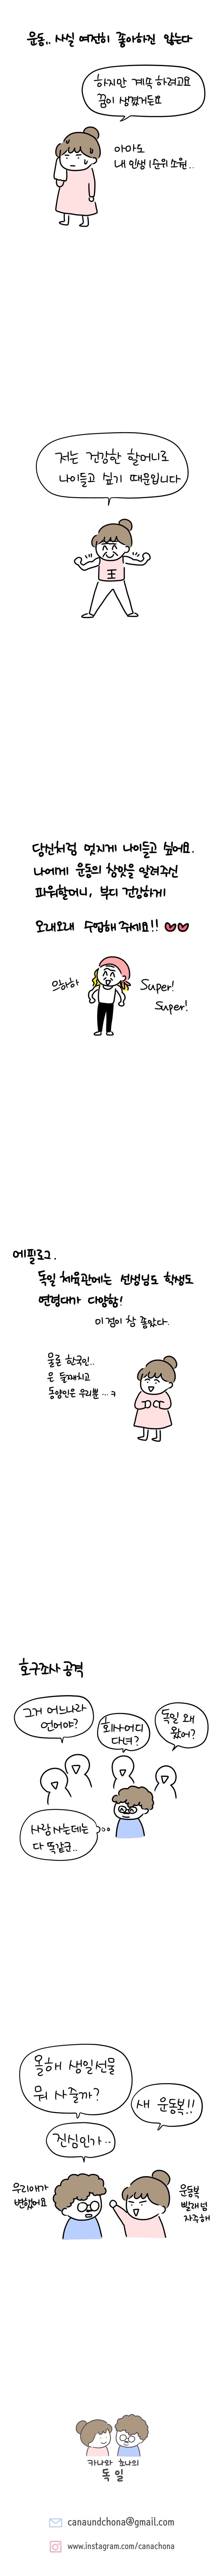 운동.. 사실 여전히 좋아하진 않는다
하지만 계속 하려고요
꿈이 생겼거든요
아마도
내 인생 1순위 소원..
저는 건강한 할머니로
나이들고 싶기 때문입니다
王
당신처럼 멋지게 나이들고 싶어요.
나에게 운동의 참맛을 알려주신
파워할머니, 부디 건강하게
오래오래 수업해 주세요!!
으하하
Super!
Super!
에필로그.
독일 체육관에는 선생님도 학생도
연령대가 다양함!
이 점이 참 좋았다.
물론 한국인..
은 둘째치고
동양인은 우리뿐 ... ㅋ
호구조사 공격
그거 어느나라
언어야?
회사 어디
다녀?
독일 왜
왔어?
사람 사는데는
다 똑같군..
올해 생일선물
뭐 사줄까?
새 운동복!!
진심인가..
우리애가
변했어요
운동복
빨래 넘
자주해
카나와 초나의
독일
canaundchona@gmail.com
www.instagram.com/canachona